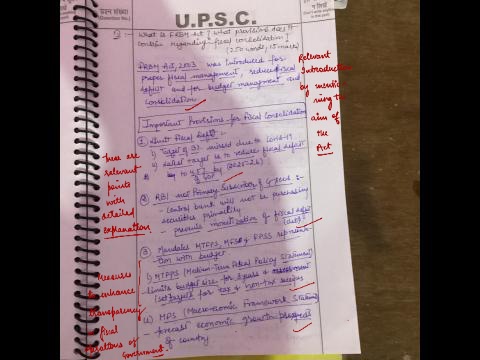 U.P.S.C.
Q:- What is FRBM Act? What provisions does it
contain regarding fiscal consolidation?
(250 words, 15 marks)
FRBM Act, 2003 was introduced for
proper fiscal management, reduce fiscal
deficit and for budget management and
consolidation.
Important Provisions for Fiscal Consolidation
① Limit Fiscal Deficit:-
i) Target of 3% missed due to Covid-19
ii) latest target is to reduce fiscal deficit
by to 4.5% by (2025-26)
② RBI not Primary Subscriber of G-sec :-
- Central bank will not be purchasing
securities primarily
- prevents monetization of fiscal deficit
③ Mandates MTFPS, MFS &
with budget
i) MTFPS (Medium-Term Fiscal Policy Statement)
- limits budget size for 3 years &
set targets for tax & non-tax
(Macro-economic Framework
forecast economic growth
of country
Relevant
Introduction
by mentio
ning the
aim of
the
Act
These are
relevant
points
with
detailed
explanation
Measures
to enhance
transparency
in fiscal
operations of
Government